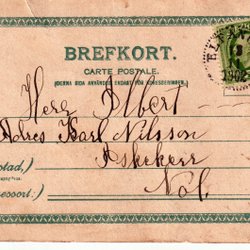 BREFKORT.
CARTE POSTALE.
(DENNA SIDA ANVÄNDES ENDAST FÖR ADRESSERINGEN.)
Herr Albert
Adres Karl Nilsson
Askeker
stad,)
Nol.
essort:)